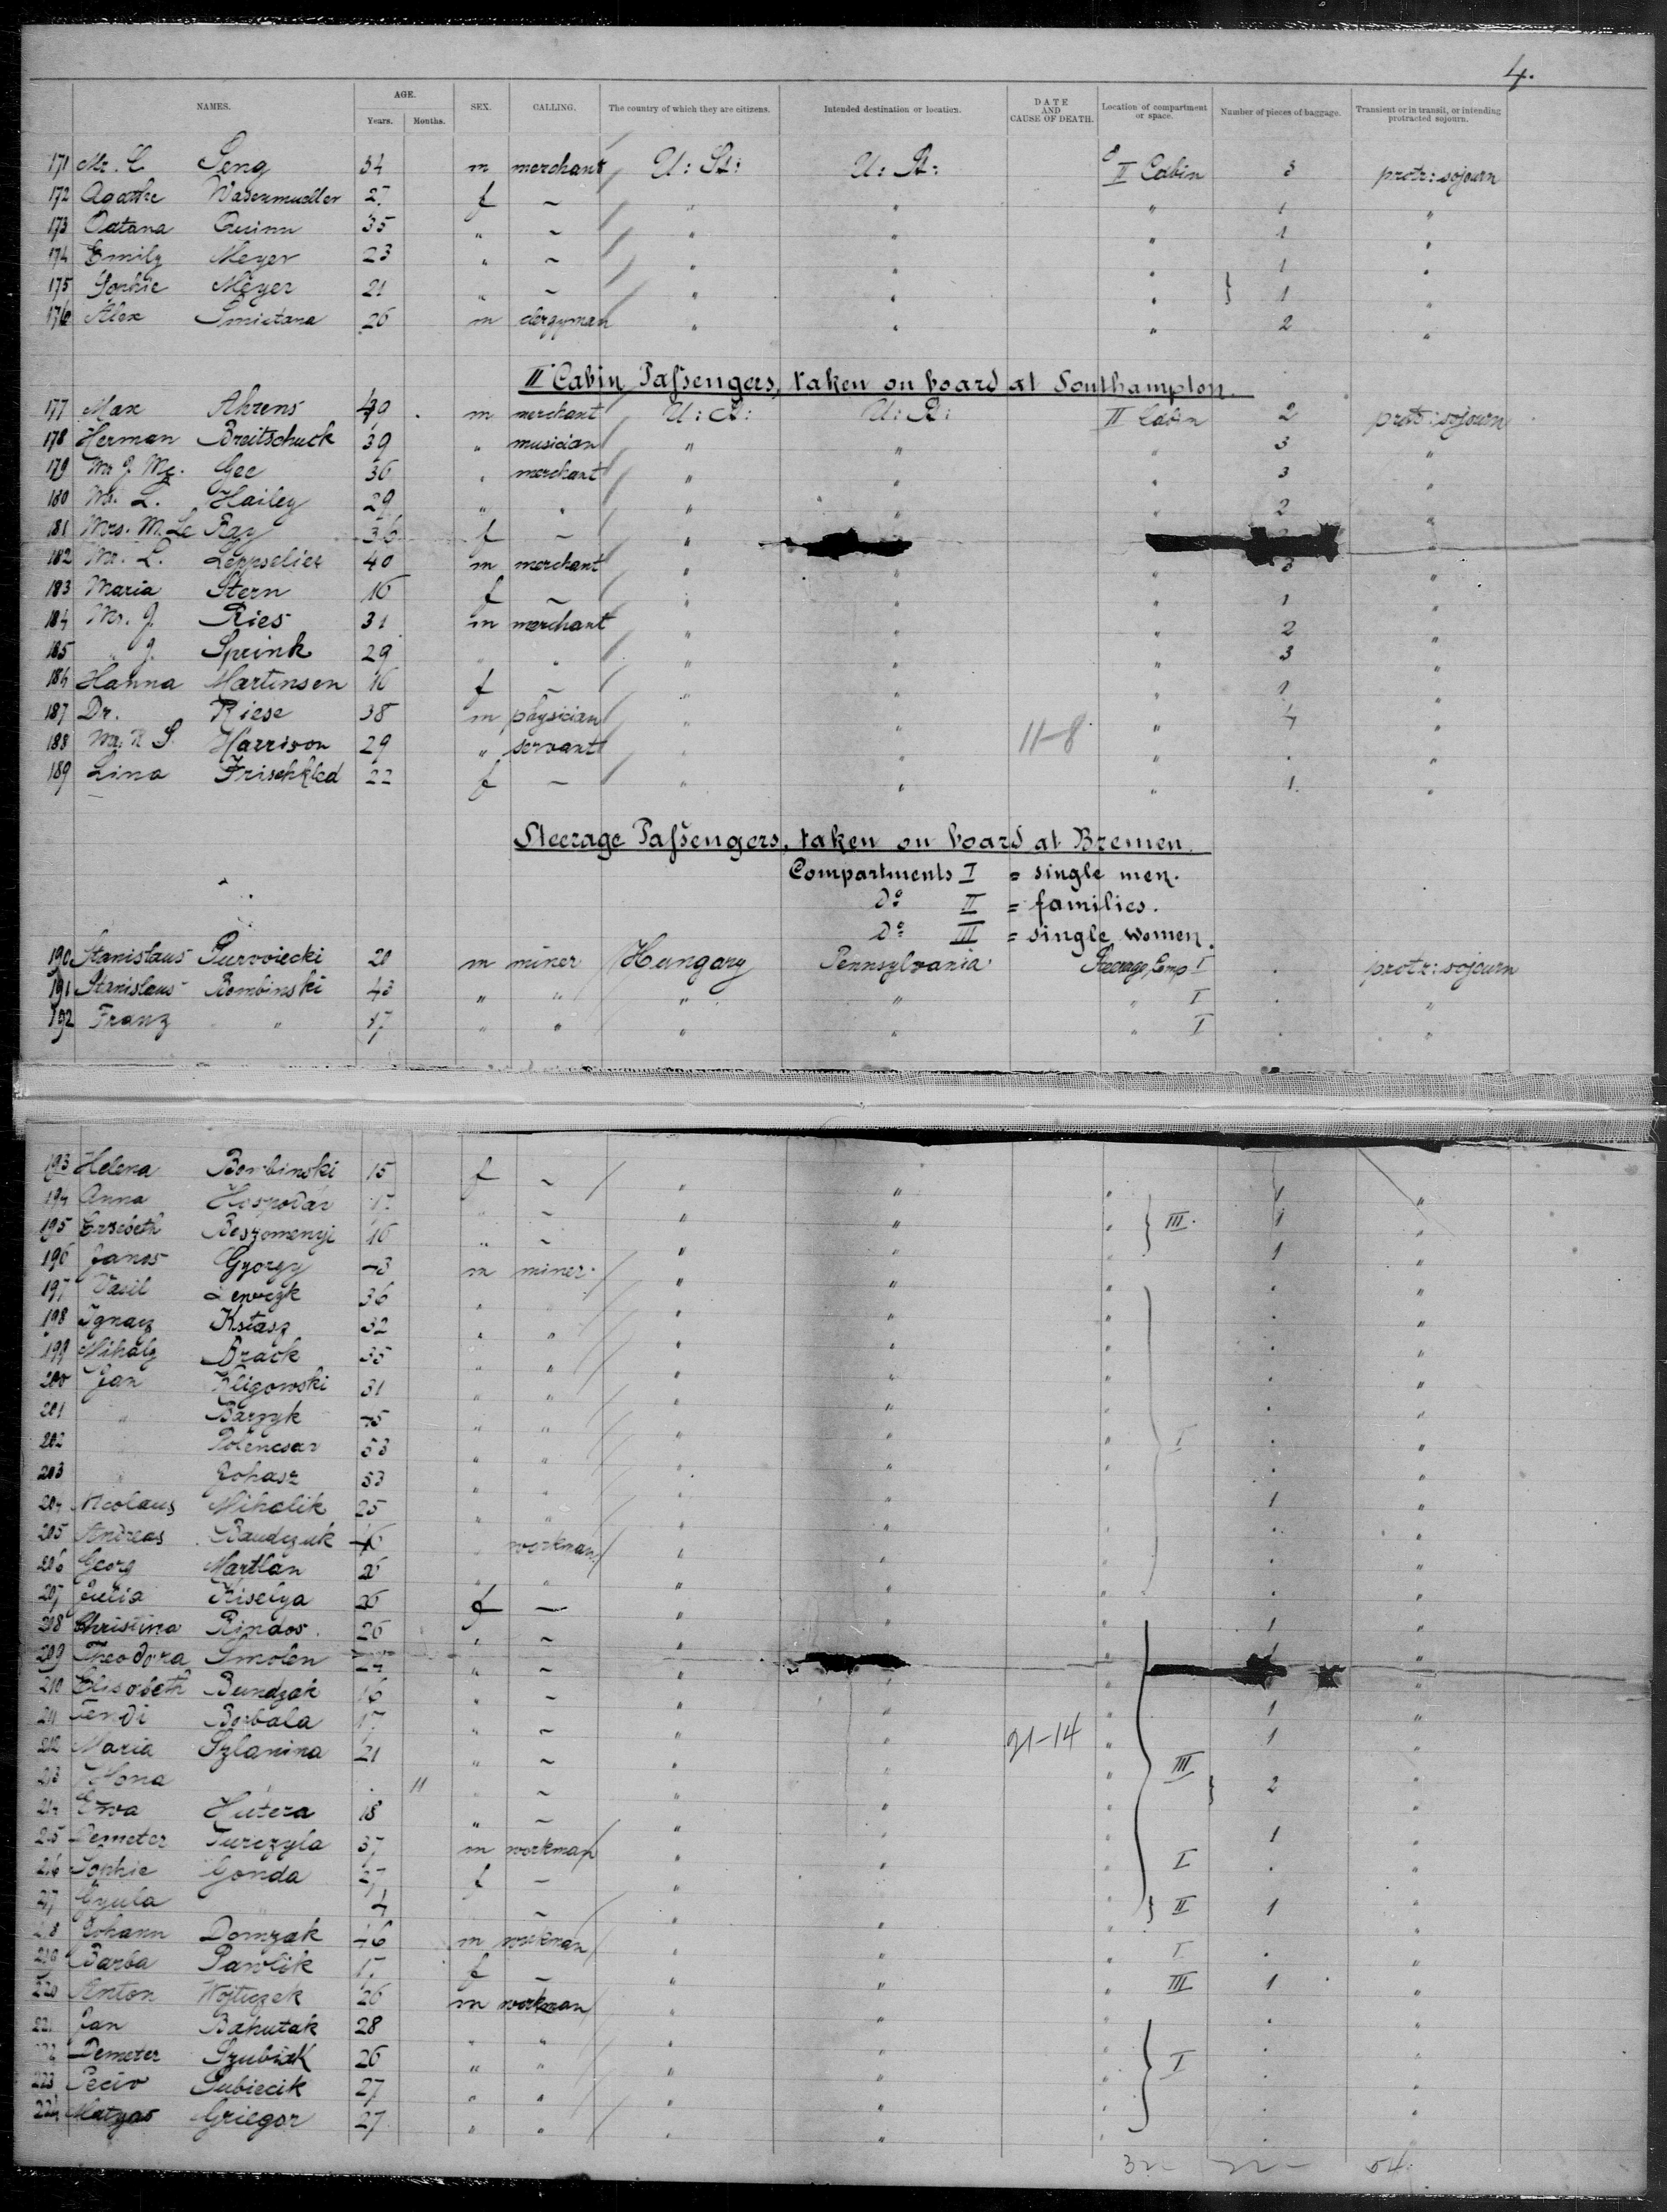 4.
NAMES. AGE. SEX. CALLING. The country of which they are citizens. Intended destination or location. DATE AND CAUSE OF DEATH. Location of compartment or space. Number of pieces of baggage. Transient or in transit, or intending protracted sojourn.
Years. Months.
171 Mr. C Seng 34 m merchant U: St: U: St: II Cabin 3 protr: sojourn
172 Agathe Wasenmueller 27 f ~ " " " 1 "
173 Quinn 35 " ~ " " " 1 "
174 Emily Meyer 23 " ~ " " " 1 "
175 Sophie Meyer 21 " ~ " " " 1 "
176 Alex Smietana 26 m clergyman " " " 2 "
II Cabin Passengers, taken on board at Southampton.
177 Max Ahrens m merchant U: St: U: St: II Cabin 2 protr: sojourn
178 Herman Breitschuck 39 " musician " " " 3 "
179 Mr J Mc. Gee 36 " merchant " " " 3 "
180 Mr. L. Hailey 29 " " " " " 2 "
181 Mrs. M. Le Ray 36 f ~ " "
182 Mr. L. 40 m merchant " " " "
183 Maria Stern 16 f ~ " " " 1 "
184 Mr. J. Ries 31 m merchant " " " 2 "
185 " J. Sprink 29 " " " " " 3 "
186 Hanna Martinsen 16 f ~ " " " 1 "
187 Dr. Riese 38 m physician " " " 4 "
188 Harrison 29 " servant " " 11-8 " . "
189 Lina 22 f — " " " 1. "
Steerage Passengers, taken on board at Bremen.
Compartments I = single men.
do II = families.
do III = single women.
190 Stanislaus 20 m miner Hungary Pennsylvania Steerage Comp I . protr: sojourn
191 Stanislaus Bombinski 43 " " " " " I . "
192 Franz " 17 " " " " " I . "
193 Helena Bombinski 15 f ~ " " " 1 "
194 Anna Hospodar 17 " ~ " " " III. 1 "
195 Erzsebeth Beszomenyi 16 " ~ " " " 1 "
196 Janos Gyorgy 43 m miner " " " . "
197 Vasil 36 " " " " " . "
198 Ignacz 32 " " " " " . "
199 Mihaly Brack 35 " " " " " . "
200 Jan Kligowski 31 " " " " " . "
201 " " " " " " I . "
202 " 53 " " " " " . "
203 " 53 " " " " " . "
204 Nicolaus Mihalik 25 " " " " " 1 "
205 Andreas Baudzuk " workman " " " . "
206 Georg Martlan 26 " " " " " . "
207 Julia Kiselya 26 f — " " " . "
208 Christina Rindos 26 " ~ " " " 1 "
209 Theodora Smolen " ~ " " " 1 "
210 Elisabeth Bundzak 16 " ~ " " " "
211 Borbala 17 " ~ " " " 1 "
212 Maria Szlanina 21 " ~ " " 21-14 " III 1 "
213 Ilona 11 " ~ " " " 2 "
214 Ewa Hutera 18 " ~ " " " 1 "
215 Demeter Turczyla 37 m workman " " " I . "
216 Sophie Gonda 27 f — " " " II 1 "
217 Gyula " 4 ~ " " " "
218 Johann Domzak 46 m workman " " " I . "
219 Barba Pawlik 17 f ~ " " " III 1 "
220 Anton Wojticzek 26 m workman " " " . "
221 Jan Bahutak 28 " " " " " . "
222 Demeter 26 " " " " " I . "
223 Subiecik 27 " " " " " . "
224 Matyas Griegor 27 " " " " . "
32- 22- 54.